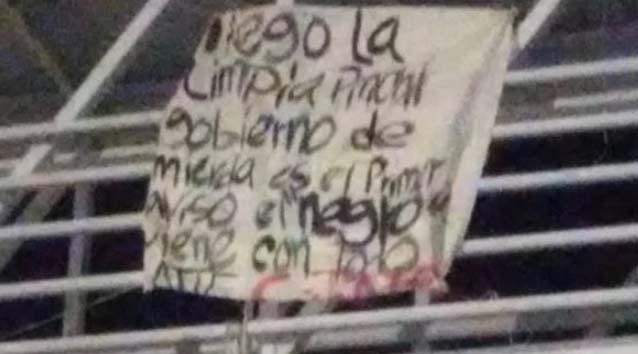 llego la
Limpia Pinchi
gobierno de
mierda es el Primer
aviso el negro
viene con todo
ATT